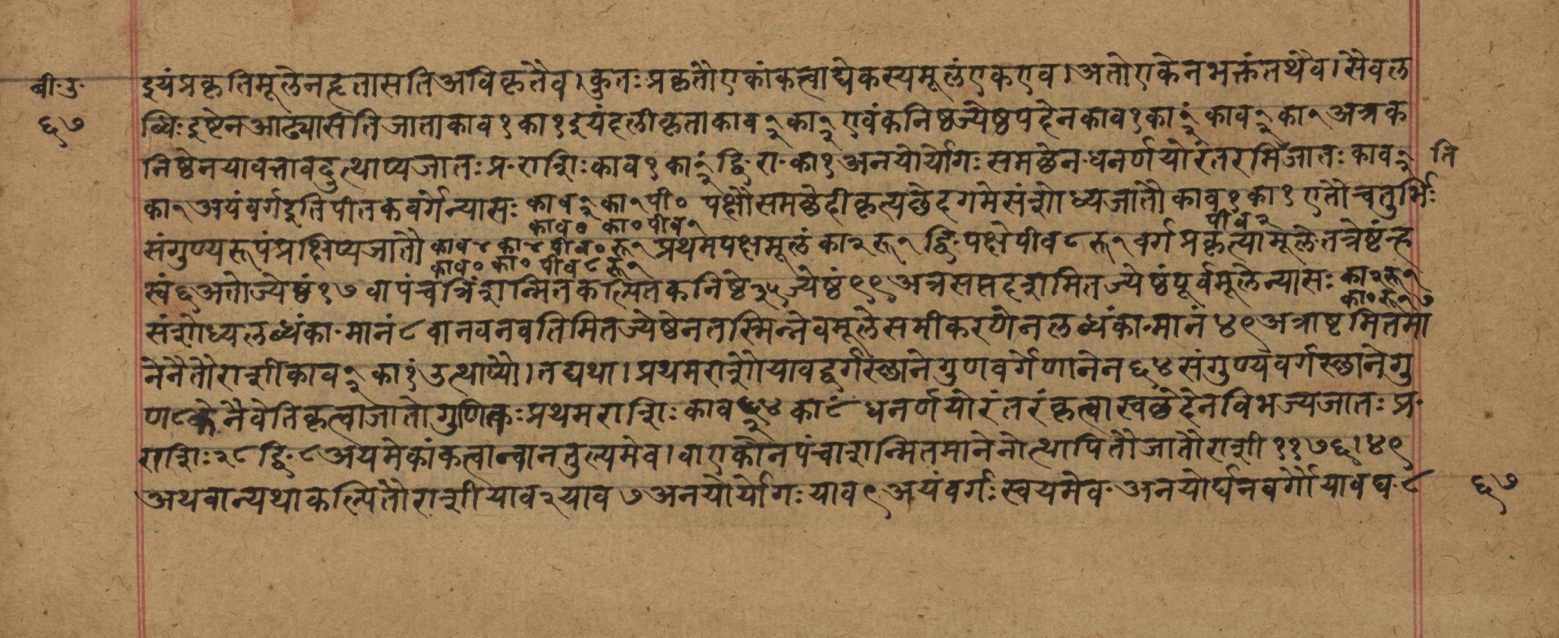 बी॰उ॰
६७
इयंप्रकृतिमूलेनहृतासतिअविकृतैव। कुतः प्रकृतौएकांकत्वाद्येकस्यमूलंएकएव। अतोएकेनभक्तंतथैव। सैवल
ब्धिः इष्टेनआढ्यासतिजाताकाव१का१इयंदलीकृताकाव १/२ का १/२ एवंकनिष्ठज्येष्ठपदेनकाव१का १/२ काव १/२ का १ अत्रक
निष्ठेनयावत्तावदुत्थाप्यजातः प्र॰राशिः काव१का १/२ द्वि॰रा॰का१अनयोर्योगः समछेन॰धनर्णयोरंतरमितिजातः काव १/२
का १ अयंवर्गइतिपीतकवर्गेन्यासः काव १/२ का १ पी० काव० का० पीव१ पक्षौसमछेदीकृत्यछेदगमेसंशोध्यजातौकाव१का१ पीव२ एतौचतुर्भिः
संगुण्यरूपंप्रक्षिप्यजातौ काव४का४पीव०रू१ काव०का०पीव८रू१ प्रथमपक्षमूलंका२रू१द्वि॰पक्षेपीव८रू१वर्गप्रकृत्यामूलेतत्रेष्टंन्ह
स्वं६अतोज्येष्ठं१७वापंचत्रिंशन्मितकल्पितकनिष्ठे३५ज्येष्ठं९९अत्रसप्तदशमितज्येष्ठंपूर्वमूलेन्यासः का२रू१ का०रू१७
संशोध्यलब्धंका॰मानं८वानवनवतिमितज्येष्ठेनतस्मिन्नेवमूलेसमीकरणेनलब्धंका॰मानं४९अत्राष्टमितमा
नेनैतौराशीकाव १/२ का १ं उत्थाप्यौ। तद्यथा। प्रथमराशोयावद्वर्गस्छानेगुणवर्गेणानेन६४संगुण्यवर्गस्छानेगु
ण८केनैवेतिकृत्वाजातोगुणितः प्रथमराशिः काव६४का८ंधनर्णयोरंतरंकृत्वास्वछेदेनविभज्यजातः प्र॰
राशिः२८द्वि॰८अयमेकांकत्वान्वानतुल्यमेव। वाएकोनपंचाशन्मितमानेनोत्थापितौजातौराशी११७६।४९
अथवान्यथाकल्पितौराशीयाव२याव७अनयोर्योगः याव९अयंवर्गः स्वयमेव॰अनयोर्घनवर्गौयावघ॰८
६७